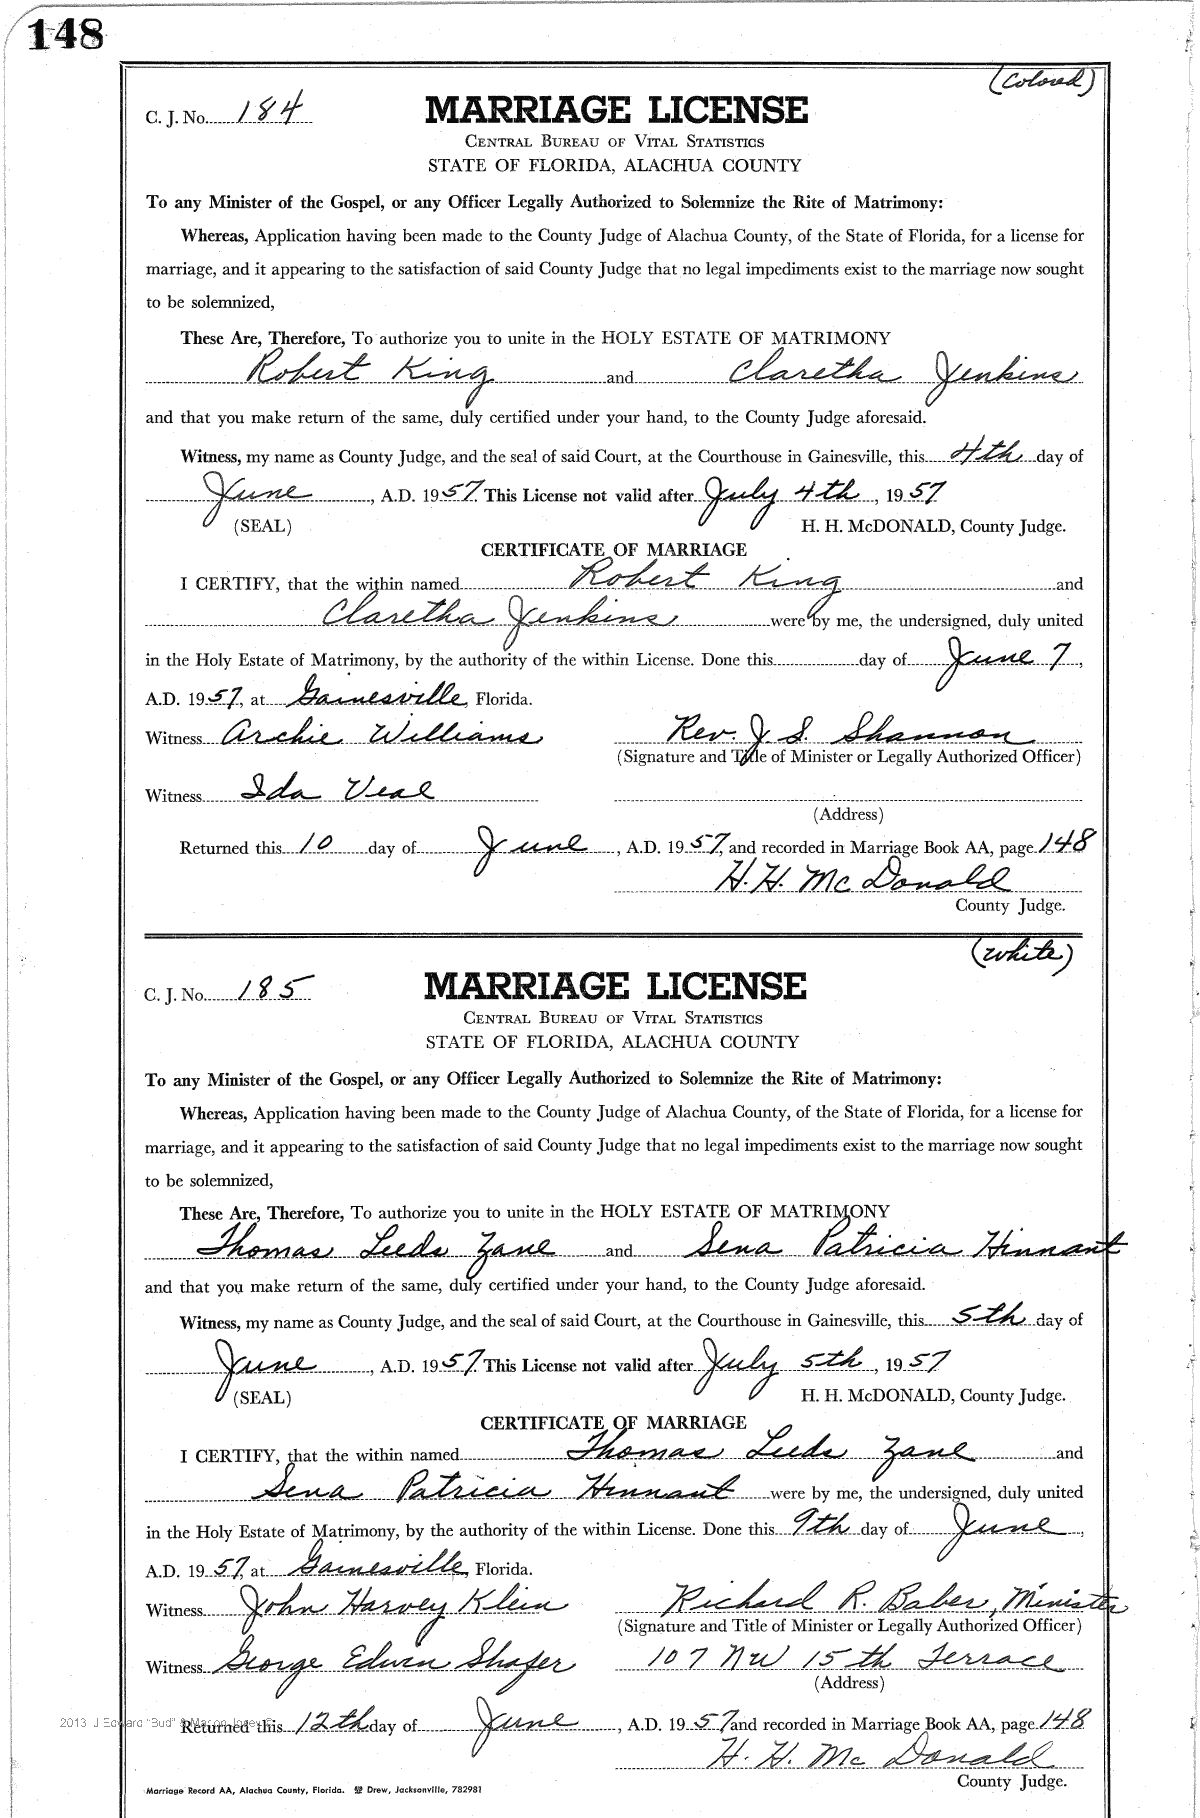 148
(Colored)
C. J. No. 184
MARRIAGE LICENSE
CENTRAL BUREAU OF VITAL STATISTICS
STATE OF FLORIDA, ALACHUA COUNTY
To any Minister of the Gospel, or any Officer Legally Authorized to Solemnize the Rite of Matrimony:
Whereas, Application having been made to the County Judge of Alachua County, of the State of Florida, for a license for
marriage, and it appearing to the satisfaction of said County Judge that no legal impediments exist to the marriage now sought
to be solemnized,
These Are, Therefore, To authorize you to unite in the HOLY ESTATE OF MATRIMONY
Robert King and Claretha Jenkins
and that you make return of the same, duly certified under your hand, to the County Judge aforesaid.
Witness, my name as County Judge, and the seal of said Court, at the Courthouse in Gainesville, this 4th day of
June, A.D. 1957. This License not valid after July 4th, 1957
(SEAL) H. H. McDONALD, County Judge.
CERTIFICATE OF MARRIAGE
I CERTIFY, that the within named Robert King and
Claretha Jenkins were by me, the undersigned, duly united
in the Holy Estate of Matrimony, by the authority of the within License. Done this day of June 7,
A.D. 1957, at Gainesville, Florida.
Witness Archie Williams Rev. J. S. Shannon
(Signature and Title of Minister or Legally Authorized Officer)
Witness Ida Veal
(Address)
Returned this 10 day of June, A.D. 1957, and recorded in Marriage Book AA, page 148
H. H. McDonald
County Judge.
(White)
C. J. No. 185
MARRIAGE LICENSE
CENTRAL BUREAU OF VITAL STATISTICS
STATE OF FLORIDA, ALACHUA COUNTY
To any Minister of the Gospel, or any Officer Legally Authorized to Solemnize the Rite of Matrimony:
Whereas, Application having been made to the County Judge of Alachua County, of the State of Florida, for a license for
marriage, and it appearing to the satisfaction of said County Judge that no legal impediments exist to the marriage now sought
to be solemnized,
These Are, Therefore, To authorize you to unite in the HOLY ESTATE OF MATRIMONY
Thomas Leeds Zane and Sena Patricia Hinnant
and that you make return of the same, duly certified under your hand, to the County Judge aforesaid.
Witness, my name as County Judge, and the seal of said Court, at the Courthouse in Gainesville, this 5th day of
June, A.D. 1957. This License not valid after July 5th, 1957
(SEAL) H. H. McDONALD, County Judge.
CERTIFICATE OF MARRIAGE
I CERTIFY, that the within named Thomas Leeds Zane and
Sena Patricia Hinnant were by me, the undersigned, duly united
in the Holy Estate of Matrimony, by the authority of the within License. Done this 9th day of June,
A.D. 1957, at Gainesville, Florida.
Witness John Harvey Klein Richard R. Baber, Minister
(Signature and Title of Minister or Legally Authorized Officer)
Witness George Edwin Shafer 107 NW 15th Terrace
(Address)
2013 J Edward "Bud" &
Returned this 12th day of June, A.D. 1957 and recorded in Marriage Book AA, page 148
H. H. McDonald
County Judge.
Marriage Record AA, Alachua County, Florida. Drew, Jacksonville, 782981